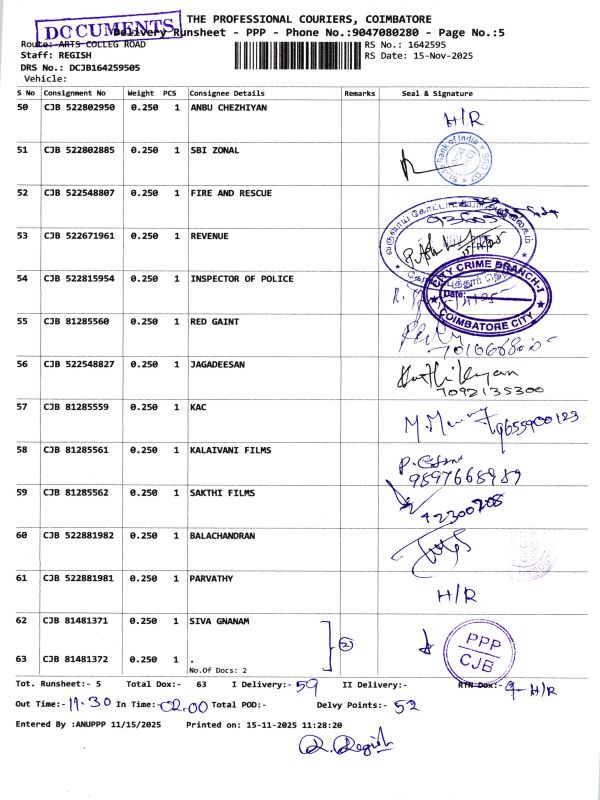 DOCUMENTS
THE PROFESSIONAL COURIERS, COIMBATORE
Delivery Runsheet - PPP - Phone No.:9047080280 - Page No.:5
Route: ARTS COLLEG ROAD
RS No.: 1642595
Staff: REGISH
RS Date: 15-Nov-2025
DRS No.: DCJB164259505
Vehicle:
S No Consignment No Weight PCS Consignee Details Remarks Seal & Signature
50 CJB 522802950 0.250 1 ANBU CHEZHIYAN H/R
51 CJB 522802885 0.250 1 SBI ZONAL
52 CJB 522548807 0.250 1 FIRE AND RESCUE
53 CJB 522671961 0.250 1 REVENUE
54 CJB 522815954 0.250 1 INSPECTOR OF POLICE
CITY CRIME BRANCH-I
Date:
COIMBATORE CITY
55 CJB 81285560 0.250 1 RED GAINT
56 CJB 522548827 0.250 1 JAGADEESAN
7092135300
57 CJB 81285559 0.250 1 KAC
9655900123
58 CJB 81285561 0.250 1 KALAIVANI FILMS
9897668989
59 CJB 81285562 0.250 1 SAKTHI FILMS
60 CJB 522881982 0.250 1 BALACHANDRAN
61 CJB 522881981 0.250 1 PARVATHY H/R
62 CJB 81481371 0.250 1 SIVA GNANAM
2
PPP
CJB
63 CJB 81481372 0.250 1 .
No.Of Docs: 2
Tot. Runsheet:- 5 Total Dox:- 63 I Delivery:- 59 II Delivery:- RTN Dox:- 9 - H/R
Out Time:- 11.30 In Time:- 02.00 Total POD:- Delvy Points:- 52
Entered By :ANUPPP 11/15/2025 Printed on: 15-11-2025 11:28:20
R. Regish